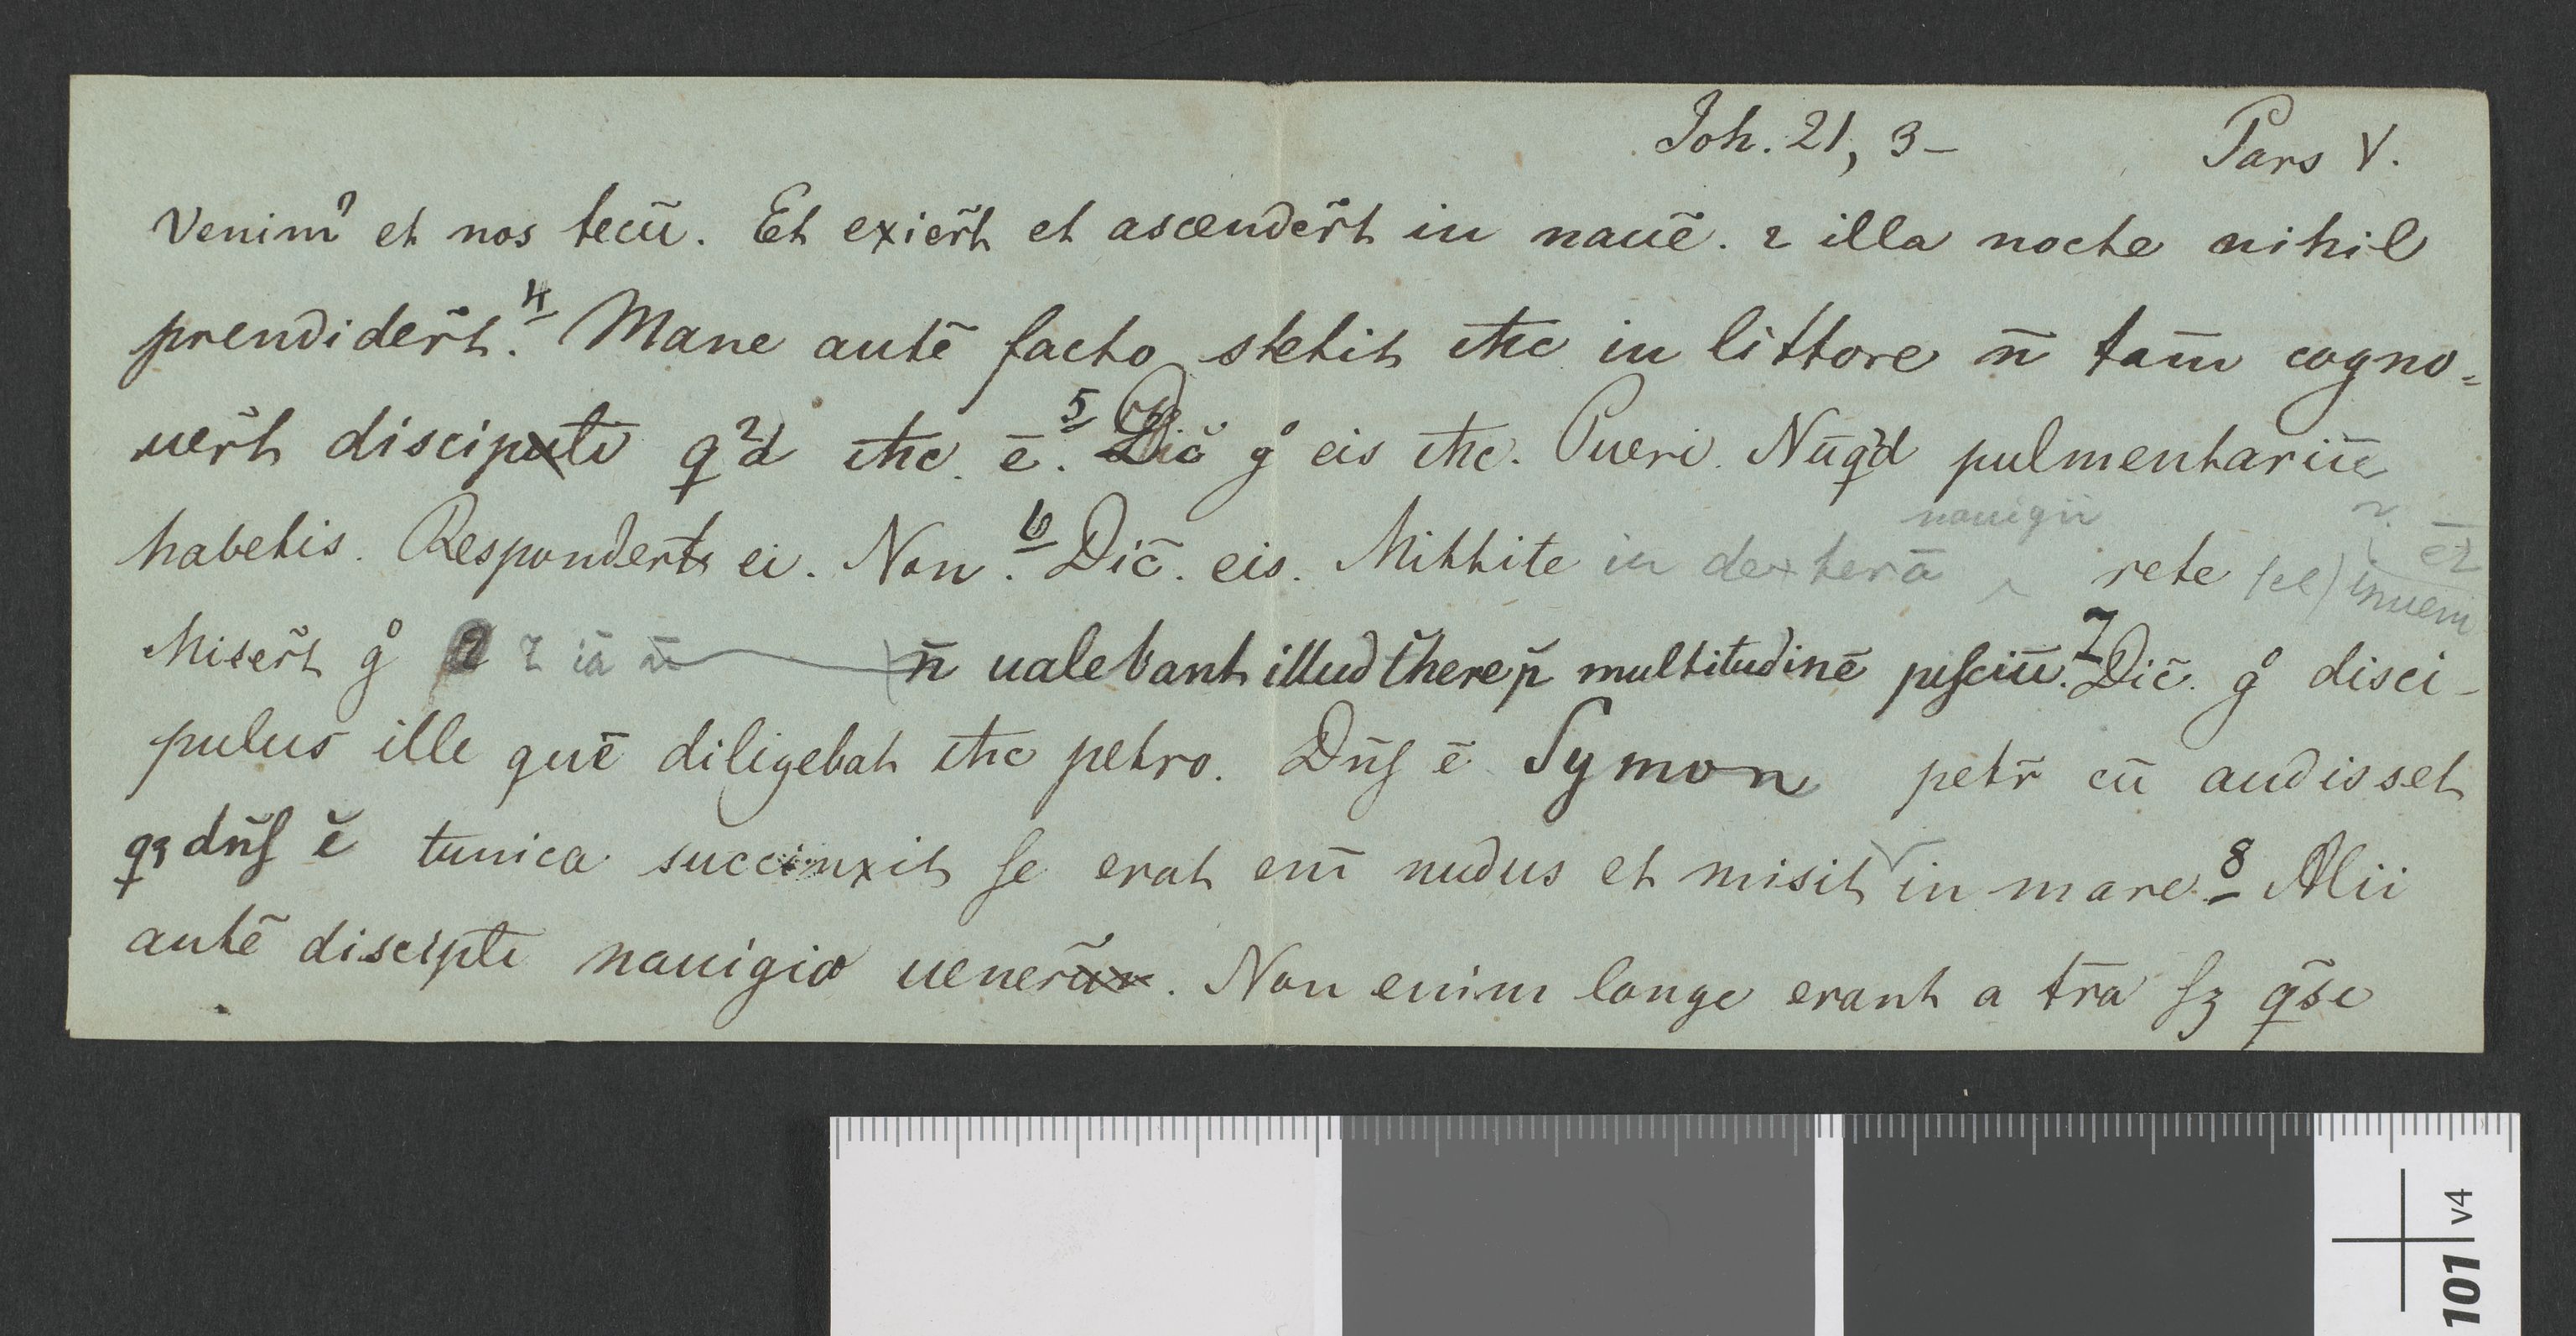 Joh. 21, 3– Pars V.
Venim᾽ et nos tecū. Et exier̄t et ascender̄t in nauē. ⁊ illa nocte nihil
prendider̄t. 4 Mane autē facto stetit ıħc in littore n̄ tam̄ cogno=
uer̄t discipułi qd ıħc. ē. 5 Dic̄ g̊ eis ıħc. Pueri. Nūqd pulmentariū
habetis. Responder̄t ei. Non. 6 Dic̄. eis. Mittite in dexterā nauigii rete (et) inueni
Miser̄t g̊ ⁊ iā n̄ n̄ ualebant illud t̄here p̄ multitudinē piſciū. 7 Dic̄. g̊ disci-
pulus ille quē diligebat ıħc petro. Dn̄ſ ē Symon petr̄ cū audisset
qꝫ dn̄ſ ē tunica succinxit ſe erat em̄ nudus et misit in mare. 8 Alii
autē discipłi nauigio uener̄. Non enim longe erant a tr̄a ſꝫ q̄si
101 v4